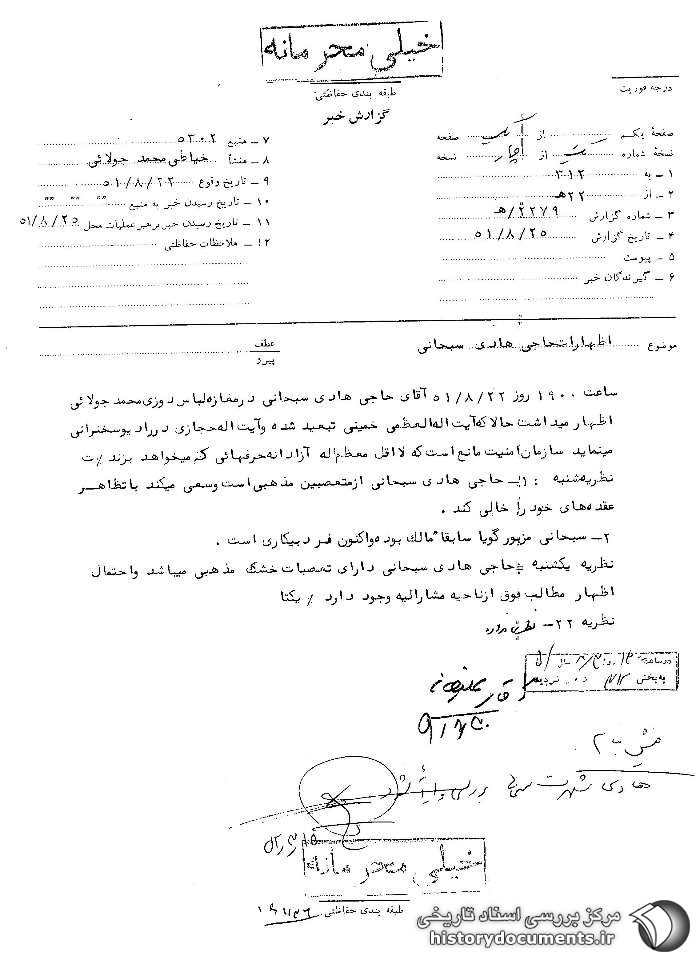 خیلی محرمانه
طبقه بندی حفاظتی:
گزارش خبر
درجه فوریت
صفحهٔ یکم از یک صفحه
نسخهٔ شماره یک از چهار نسخه
۱ – به ۳۱۲
۲ – از ۲۲هـ
۳ – شماره گزارش ۲۲۷۹/هـ
۴ – تاریخ گزارش ۵۱/۸/۲۵
۵ – پیوست
۶ – گیرندگان خبر
۷ – منبع ۵۳۰۲
۸ – منشأ خیاطی محمد جولائی
۹ – تاریخ وقوع ۵۱/۸/۲۲
۱۰ – تاریخ رسیدن خبر به منبع " " "
۱۱ – تاریخ رسیدن خبر برهبر عملیات محل ۵۱/۸/۲۵
۱۲ – ملاحظات حفاظتی
موضوع اظهارات حاجی هادی سبحانی
عطف
پیرو
ساعت ۱۹۰۰ روز ۵۱/۸/۲۲ آقای حاجی هادی سبحانی در مغازه لباس دوزی محمد جولائی
اظهار میداشت حالا که آیت اله العظمی خمینی تبعید شده و آیت اله حجازی در رادیو سخنرانی
مینماید سازمان امنیت مانع است که لا اقل معظم اله آزادانه حرفهائی که میخواهد بزند /ت
نظریه شنبه : ۱– حاجی هادی سبحانی از متعصبین مذهبی است و سعی میکند با تظاهر
عقده های خود را خالی کند .
۲– سبحانی مزبور گویا سابقا" مالك بوده و اکنون فرد بیکاری است .
نظریه یکشنبه حاجی هادی سبحانی دارای تعصبات خشك مذهبی میباشد و احتمال
اظهار مطالب فوق از ناحیه مشارالیه وجود دارد / یکتا
نظریه ۲۲– نظری ندارد
به بخش ۳۱۲
هادی شهرت سبحانی بررسی و
خیلی محرمانه
طبقه بندی حفاظتی:
مرکز بررسی اسناد تاریخی
historydocuments.ir